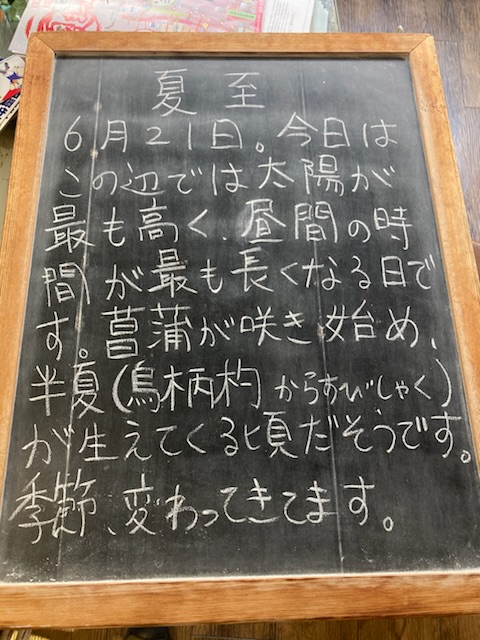 夏至
6月21日。今日は
この辺では太陽が
最も高く、昼間の時
間が最も長くなる日で
す。菖蒲が咲き始め、
半夏(烏柄杓 からすびしゃく)
が生えてくる頃だそうです。
季節、変わってきてます。